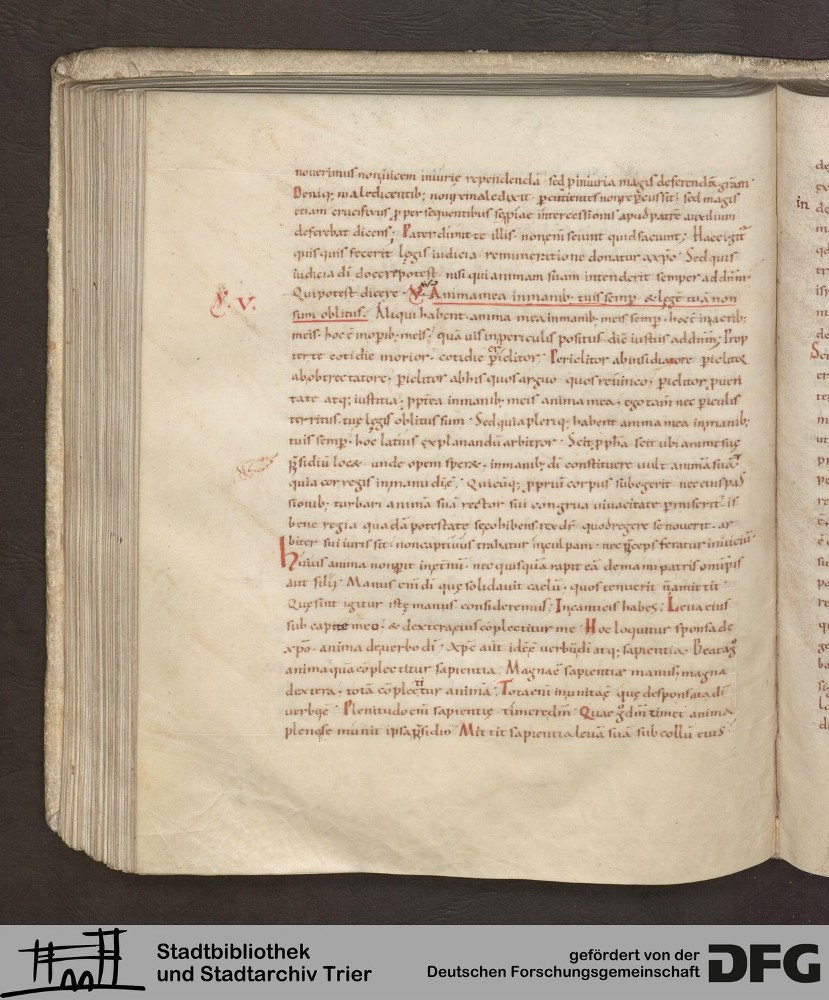 nouerimus non uicem iniurię rependendā sed p iniuria magis deferendā grām
Deniq; maledicentib; non remaledixit percutientes non repcussit sed magis
etiam crucifixus p persequentibus se piae intercessionis apud patrē auxilium
deferebat dicens; Pater dimitte illis non enī sciunt quid faciunt; Haec igit
quisquis fecerit legis iudicia remuneratione donatur a xpō Sed quis
iudicia dī docere potest nisi qui animam suam intenderit semper ad dnm
Qui potest dicere Anima mea in manib; tuis semp & legē tuā non
sum oblitus. Aliqui habent anima mea in manib; meis semp hoc ē in actib;
meis hoc ē in opib; meis quā uis in periculis positus dic̄ iustus ad dnm; Prop
ter te cotidie morior cotidie piclitor Periclitor ab insidiatore piclitor
ab obtrectatore piclitor ab his quos arguo quos reuinco piclitor, pueri
tate atq; iustitia pptea in manib; meis anima mea ego tam̄ nec piculis
territus tuę legis oblitus sum Sed quia pleriq; habent anima mea in manib;
tuis semp hoc latius explanandū arbitror Scit, ppha scit ubi animę suę
psidiū loc& unde opem sper& in manib; dī constituere uult animā suā
quia cor regis in manu dī ē Quicūq; ppriū corpus subegerit nec eius pas
sionib; turbari animā suā rector sui congrua uiuacitate pmiserit is
bene regia quadā potestate se cohibens rex dr̄ quod regere se nouerit ar
biter sui iuris sit non captiuus trahatur in culpam nec pceps feratur in uiciū
huius anima non pit in etnū nec quisquā rapit eā de manu patris omīptis
aut filii Manus enī dī quę solidauit caelū quos tenuerit n̄ amittit
Quę sint igitur istę manus consideremus; In canticis habes; Leua eius
sub capite meo & dextera eius cōplectitur me Hoc loquitur sponsa de
xpō anima de uerbo dī Xpc̄ aut idē ē uerbū dī atq; sapientia Beata
anima quā cōplectitur sapientia Magnae sapientiae manus magna
dextera totā cōplectitur animā; Tota enī munita ē quę desponsata dī
uerbo ē Plenitudo enī sapientię timere dm̄ Quae g dm̄ timet anima
plenę se munit ipsa psidio Mittit sapientia leuā suā sub collū eius
V. V.
Stadtbibliothek
und Stadtarchiv Trier
gefördert von der
Deutschen Forschungsgemeinschaft
DFG